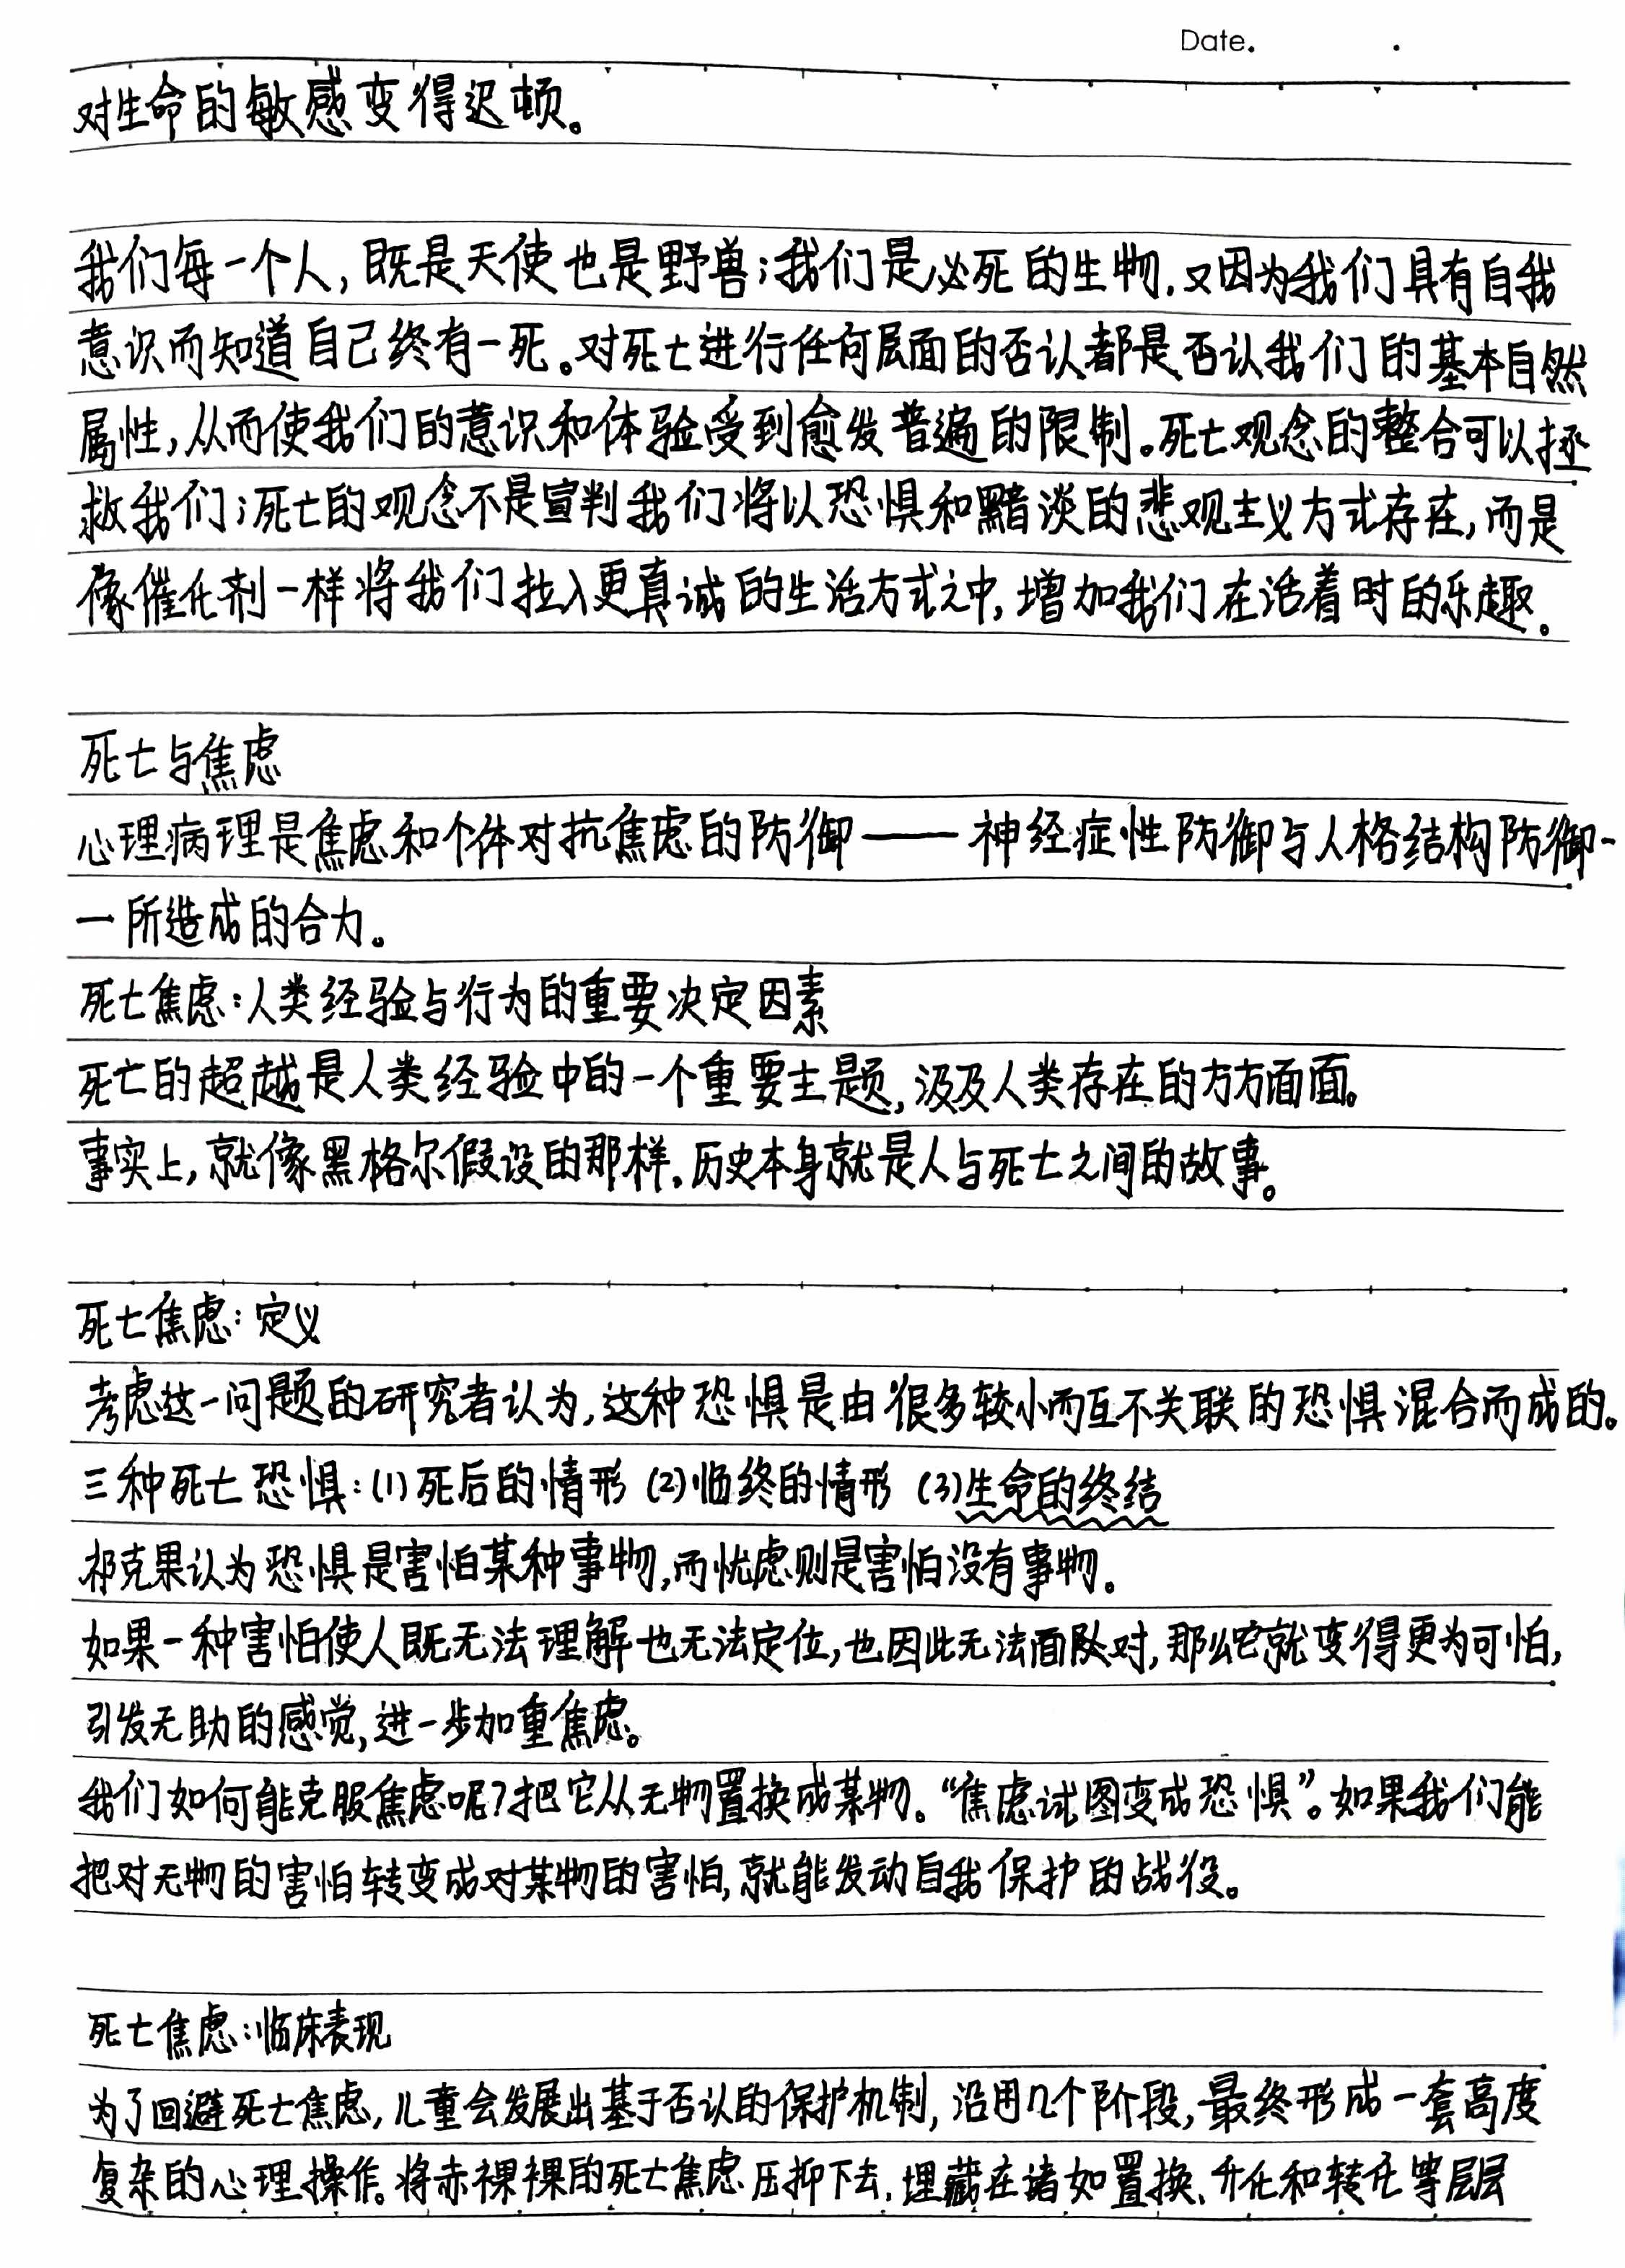 Date.
对生命的敏感变得迟顿。
我们每一个人,既是天使也是野兽;我们是必死的生物,又因为我们具有自我
意识而知道自己终有一死。对死亡进行任何层面的否认都是否认我们的基本自然
属性,从而使我们的意识和体验受到愈发普遍的限制。死亡观念的整合可以拯
救我们;死亡的观念不是宣判我们将以恐惧和黯淡的悲观主义方式存在,而是
像催化剂一样将我们拉入更真诚的生活方式之中,增加我们在活着时的乐趣。
死亡与焦虑
心理病理是焦虑和个体对抗焦虑的防御——神经症性防御与人格结构防御-
一所造成的合力。
死亡焦虑:人类经验与行为的重要决定因素
死亡的超越是人类经验中的一个重要主题,汲及人类存在的方方面面。
事实上,就像黑格尔假设的那样,历史本身就是人与死亡之间的故事。
死亡焦虑:定义
考虑这一问题的研究者认为,这种恐惧是由很多较小而互不关联的恐惧混合而成的。
三种死亡恐惧:(1)死后的情形 (2)临终的情形 (3)生命的终结
祁克果认为恐惧是害怕某种事物,而忧虑则是害怕没有事物。
如果一种害怕使人既无法理解也无法定位,也因此无法面对,那么它就变得更为可怕,
引发无助的感觉,进一步加重焦虑。
我们如何能克服焦虑呢?把它从无物置换成某物。“焦虑试图变成恐惧”。如果我们能
把对无物的害怕转变成对某物的害怕,就能发动自我保护的战役。
死亡焦虑:临床表现
为了回避死亡焦虑,儿童会发展出基于否认的保护机制,沿用几个阶段,最终形成一套高度
复杂的心理操作。将赤裸裸的死亡焦虑压抑下去,埋藏在诸如置换、升化和转化等层层